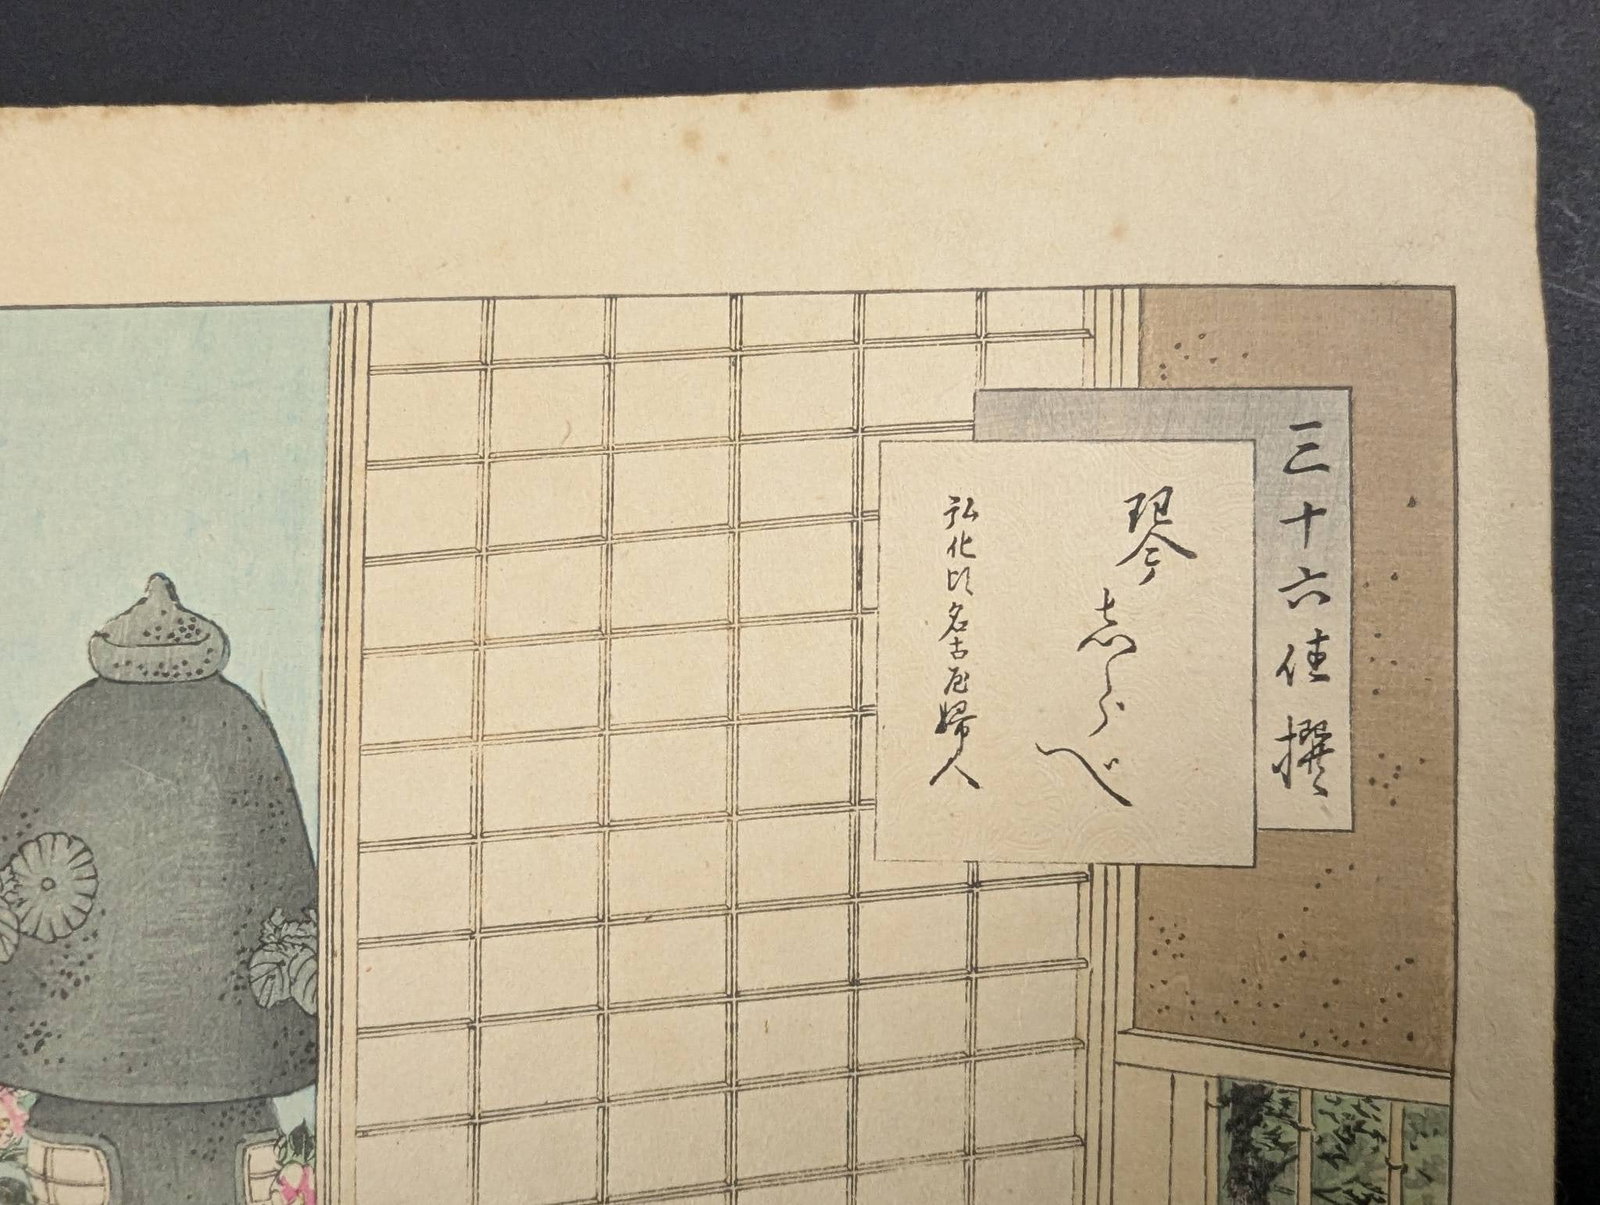 三十六佳撰
琴しらべ
弘化比名古屋婦人